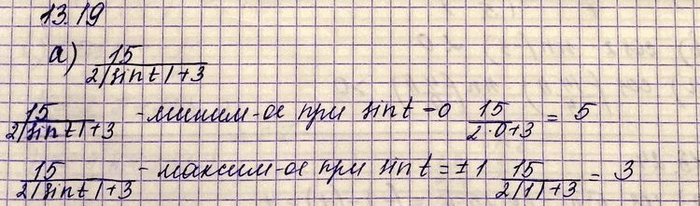 13.19
а) 15/(2|sin t|+3)
15/(2|sin t|+3) - миним-ое при sin t = 0 15/(2·0+3) = 5
15/(2|sin t|+3) - максим-ое при sin t = ±1 15/(2|1|+3) = 3